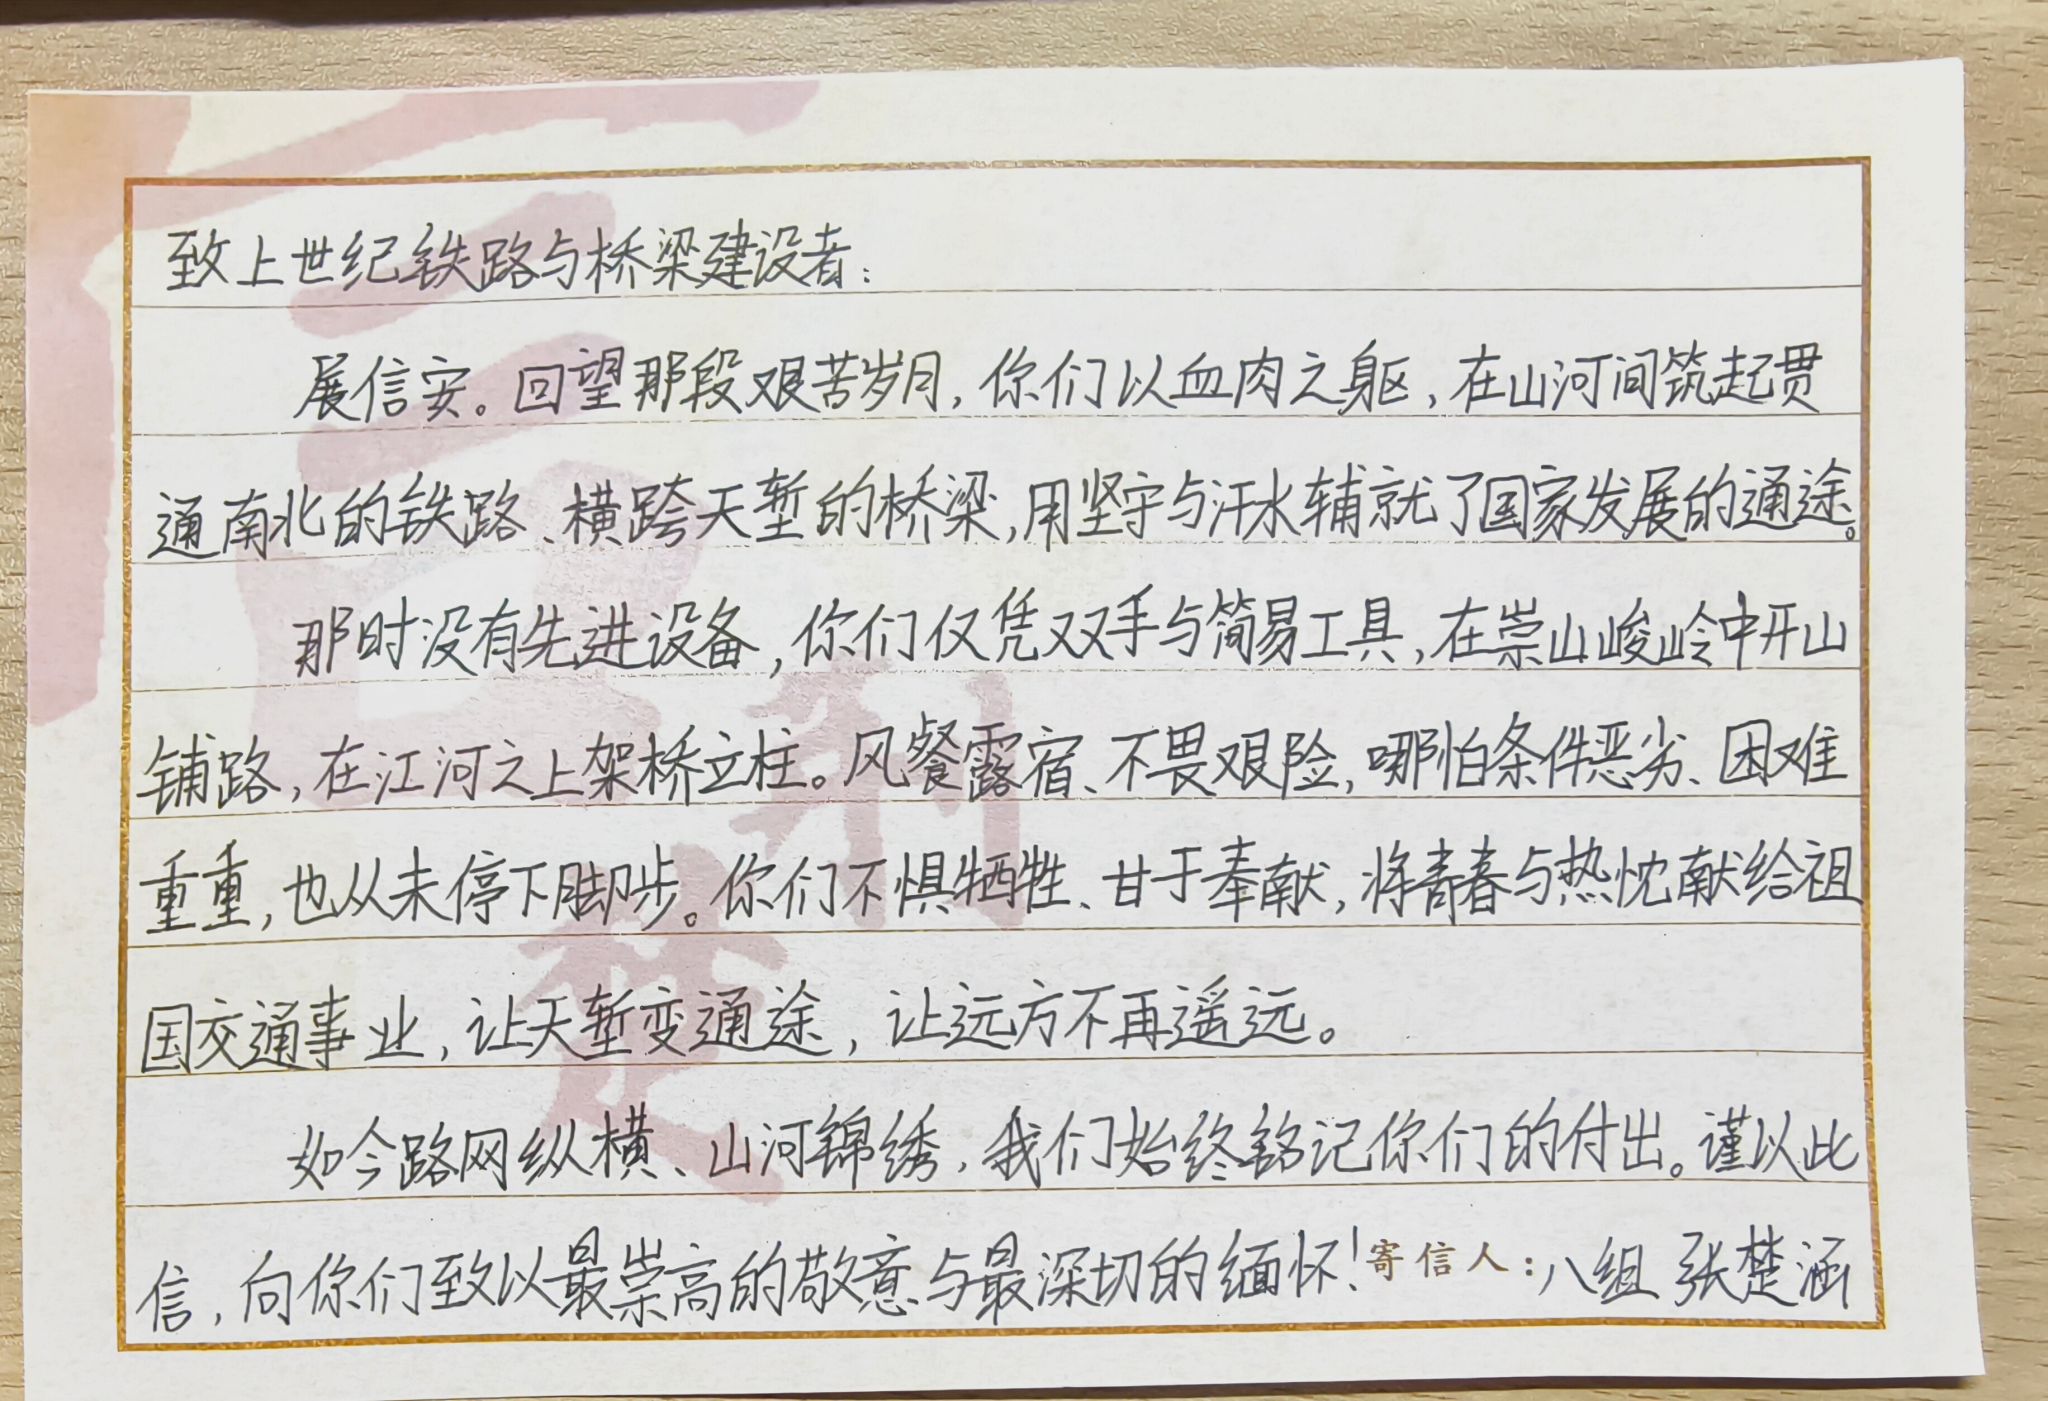 致上世纪铁路与桥梁建设者：
展信安。回望那段艰苦岁月，你们以血肉之躯，在山河间筑起贯
通南北的铁路、横跨天堑的桥梁，用坚守与汗水辅就了国家发展的通途。
那时没有先进设备，你们仅凭双手与简易工具，在崇山峻岭中开山
铺路，在江河之上架桥立柱。风餐露宿、不畏艰险，哪怕条件恶劣、困难
重重，也从未停下脚步。你们不惧牺牲、甘于奉献，将青春与热忱献给祖
国交通事业，让天堑变通途，让远方不再遥远。
如今路网纵横、山河锦绣，我们始终铭记你们的付出。谨以此
信，向你们致以最崇高的敬意与最深切的缅怀！寄信人：八组 张楚涵